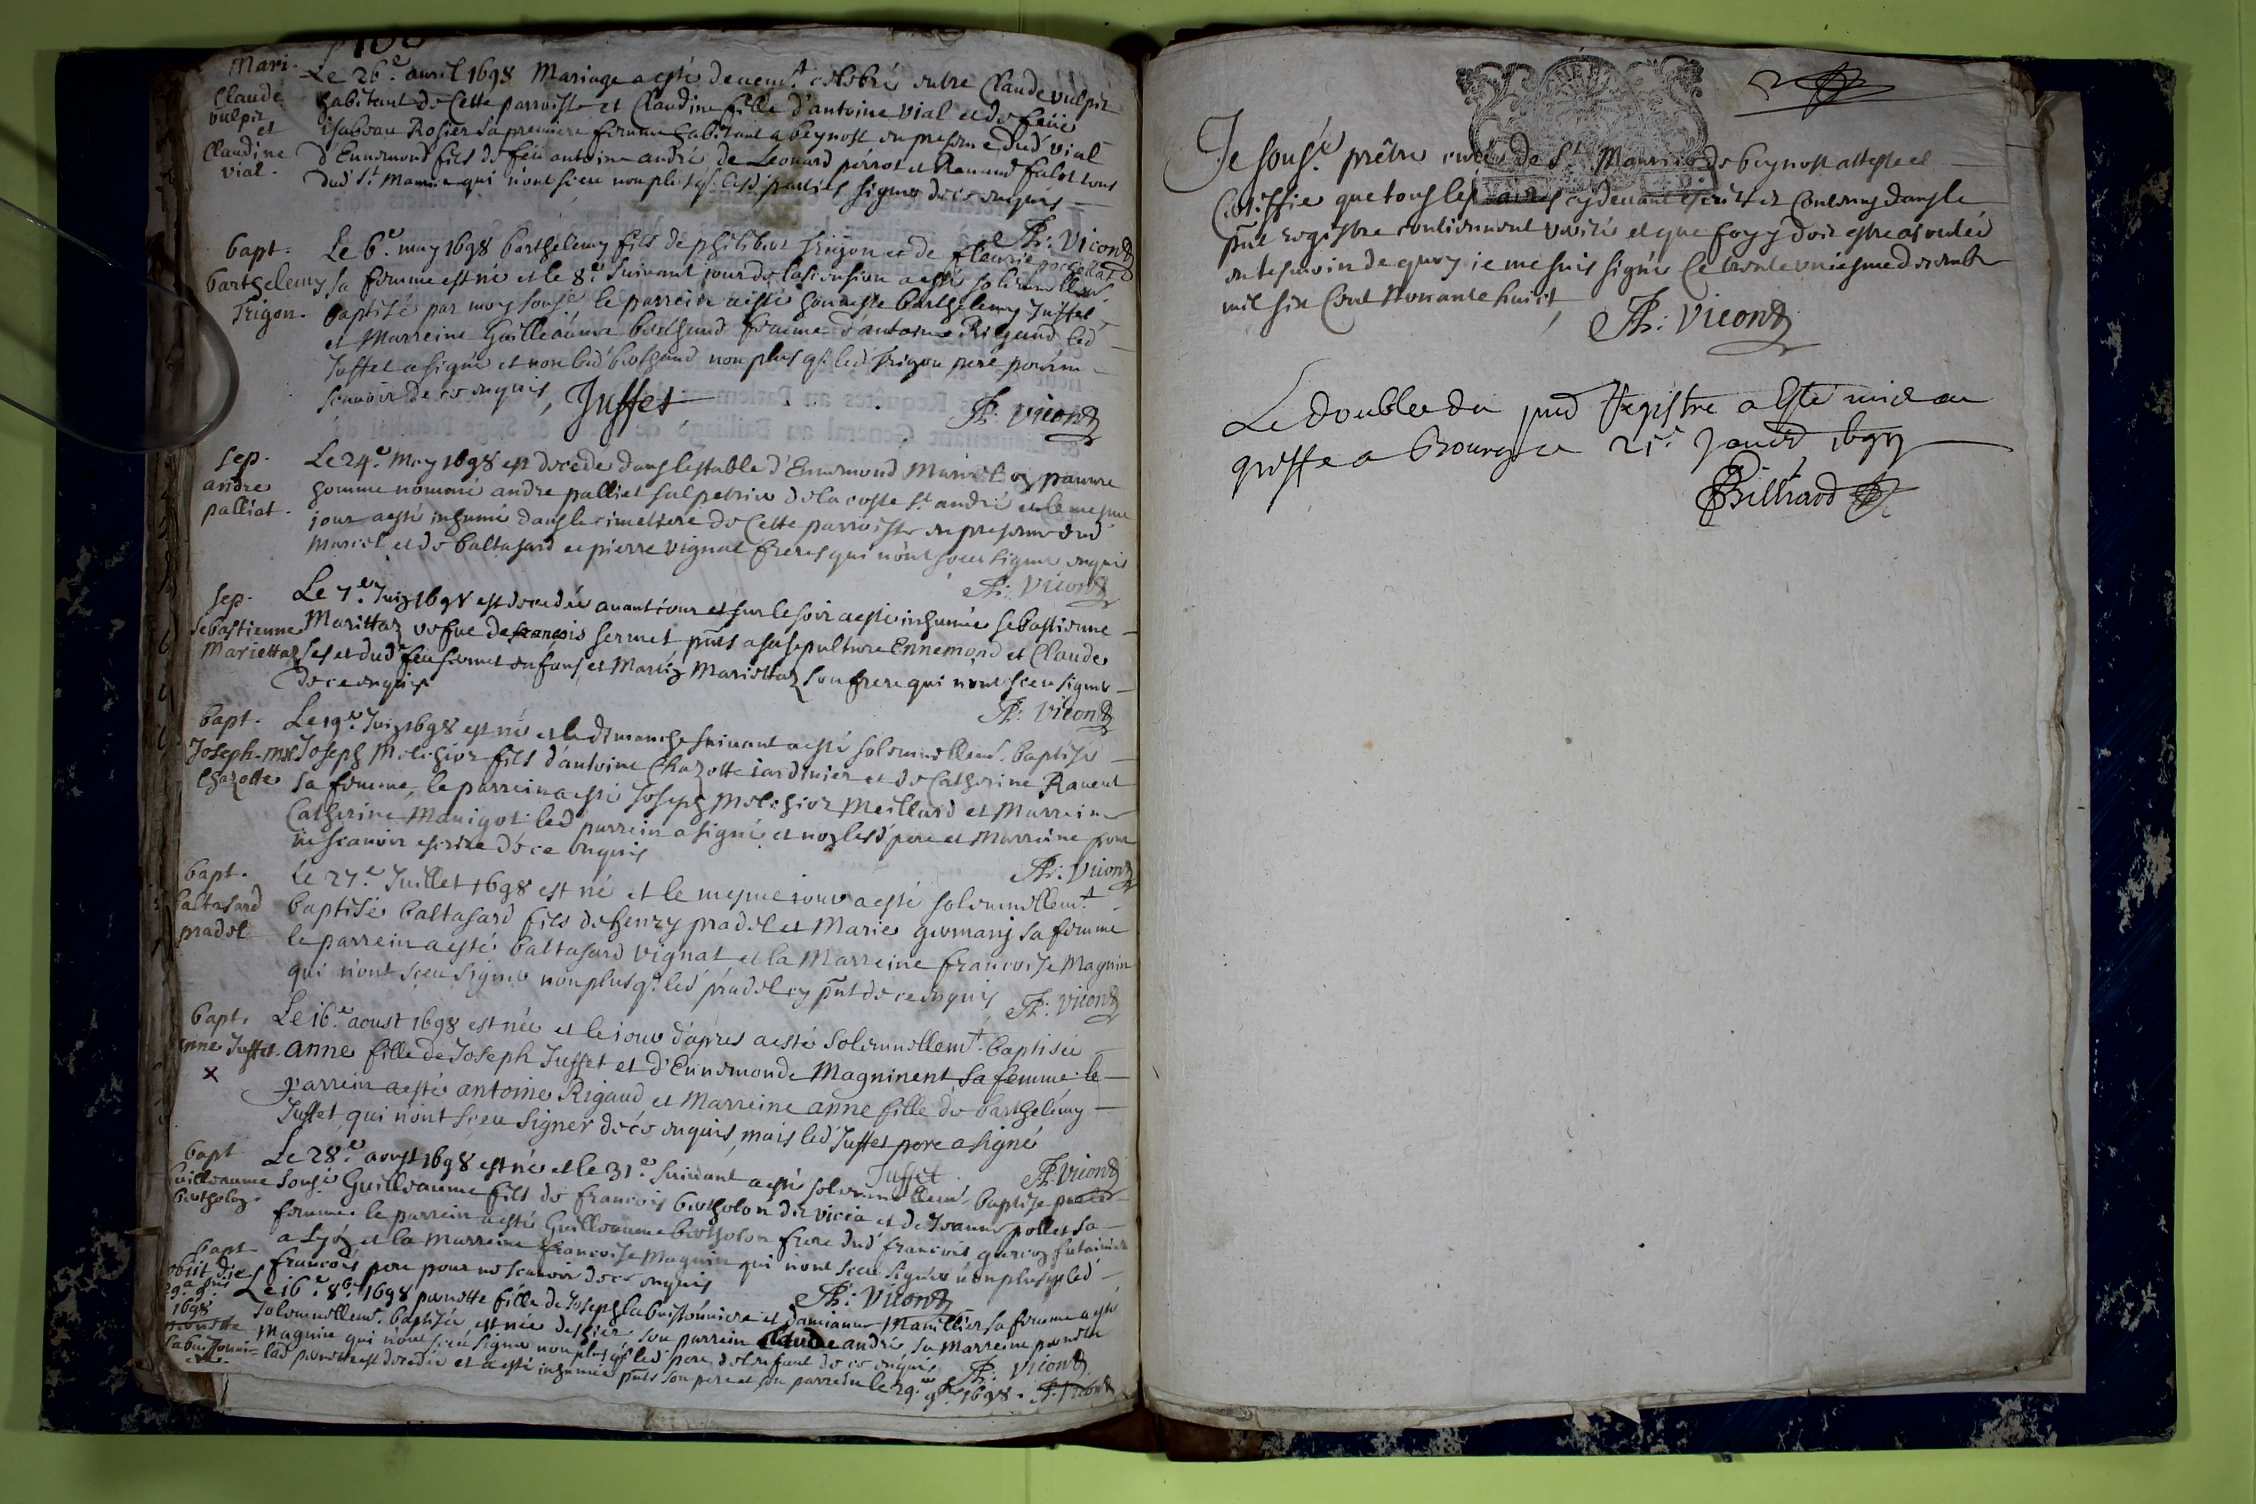 Mari.
Claude
vulpit
et
Claudine
vial.
Le 26.e auril 1698 Mariage a esté deuemt. celebré entre Claude vulpit
habitant de Cette parroisse et Claudine fille d'antoine vial et de feüe
isabeau Rosier sa premiere femme habitant a beynost en presence dud' vial
d'Ennemond fils de feu antoine andré de Leonard perrot et Renaud falet tous
dud' St. Maurice qui n'ont sceu non plus qe. lesd' parties signer de ce enquis
Th: Vicond
bapt.
barthelemy
Trigon.
Le 6.e may 1698 barthelemy fils de philibert Trigon et de fleurie
sa femme est né et le 8.e suivant jour de l'ascension a esté solemnellemt.
baptisé par moy sousé. le parrein a esté honneste barthelemy Juffet
et Marreine Guilleauma berthaud femme d'antoine Rigaud led'
Juffet a signé et non lad' berthaud non plus qe. led' Trigon pere pour ne
scauoir de ce enquis, Juffet
Th: Vicond
sep.
andre
palliat.
Le 24.e May 1698 est decedé dans l'estable d'Ennemond Marcel un pauure
homme nommé andre palliat salpetrier de la coste St. andré et le mesme
jour a esté inhumé dans le cimetiere de Cette parroisse en presence dud'
Marcel et de baltasard et pierre vignat freres qui n'ont sceu signer enquis
Th: Vicond
sep.
sebastienne
Mariettaz
Le 7.e Juin 1698 est decedée auant jour et sur le soir a esté inhumée sebastienne
Mariettaz vefue de francois sermet, pnts a sa sepulture Ennemond et Claude
ses et dud' feu sermet enfans et Martin Mariettaz son frere qui n'ont sceu signer
de ce enquis
Th: Vicond
bapt.
Joseph-
Chazotte
Le 19.e Juin 1698 est né et le dimanche suiuant a esté solemnellemt. baptisé
Joseph Melchior fils d'antoine Chazotte jardinier et de Catherine Rauent
sa femme, le parrein a esté Joseph Melchior Meillard et Marreine
Catherine Manigot led' parrein a signé et non lesd' pere et Marreine pour
ne scauoir escrire de ce enquis
Th: Vicond
bapt.
baltasard
pradel
Le 27.e Juillet 1698 est né et le mesme jour a esté solemnellemt.
baptisé baltasard fils de henry pradel et Marie germain sa femme
le parrein a esté baltasard vignat et la Marreine francoise Magnin
qui n'ont sceu signer non plus qe. led' pradel cy pnt de ce enquis
Th: Vicond
bapt.
anne Juffet.
x
Le 16.e aoust 1698 est née et le jour d'apres a esté solemnellemt. baptisée
anne fille de Joseph Juffet et d'Ennemonde Magninent sa femme. le
parrein a esté antoine Rigaud et Marreine anne fille de barthelemy
Juffet, qui n'ont sceu signer de ce enquis, mais led' Juffet pere a signé
Juffet
Th: Vicond
bapt
Guilleaume
bertholon.
Le 28.e aoust 1698 est né et le 31.e suiuant a esté solemnellemt. baptisé par
sousé Guilleaume fils de francois bertholon dit vicia et de Jeanne pollet sa
femme le parrein a esté Guilleaume bertholon frere dud' francois garcon futainier
a Lyon et la Marreine francoise Magnin qui n'ont sceu signer non plus qe led'
francois pere pour ne scauoir de ce enquis
Th: Vicond
bapt
obiit die
29.a 9bris
1698
pernette
labuissonniere
Le 16.e 8.bre 1698 pernette fille de Joseph labuissonniere et damianne Manillier sa femme a esté
solemnellemt. baptisée est née d'hier son parrein claude andré sa Marreine pernette
Magnin qui n'ont sceu signer non plus qe led' pere de l'enfant de ce enquis Th: Vicond
lad' pernette est decedée et a esté inhumée pnts son pere et son parrein le 29.me 9bre 1698. Th: Vicond
Je sousé. prêtre curé de St. Maurice de beynost atteste et
Certiffie que tous les actes cy deuant escrits et Contenus dans le
pnt registre contiennent verité et que foy y doit estre adioutée
en tesmoin de quoy je me suis signé Ce trente vniesme decembre
mil six Cent Nonante huict,
Th: Vicond
Le double du pnt Registre a Esté mis au
greffe a Bourg ce 21.e Januier 1699
Billiard